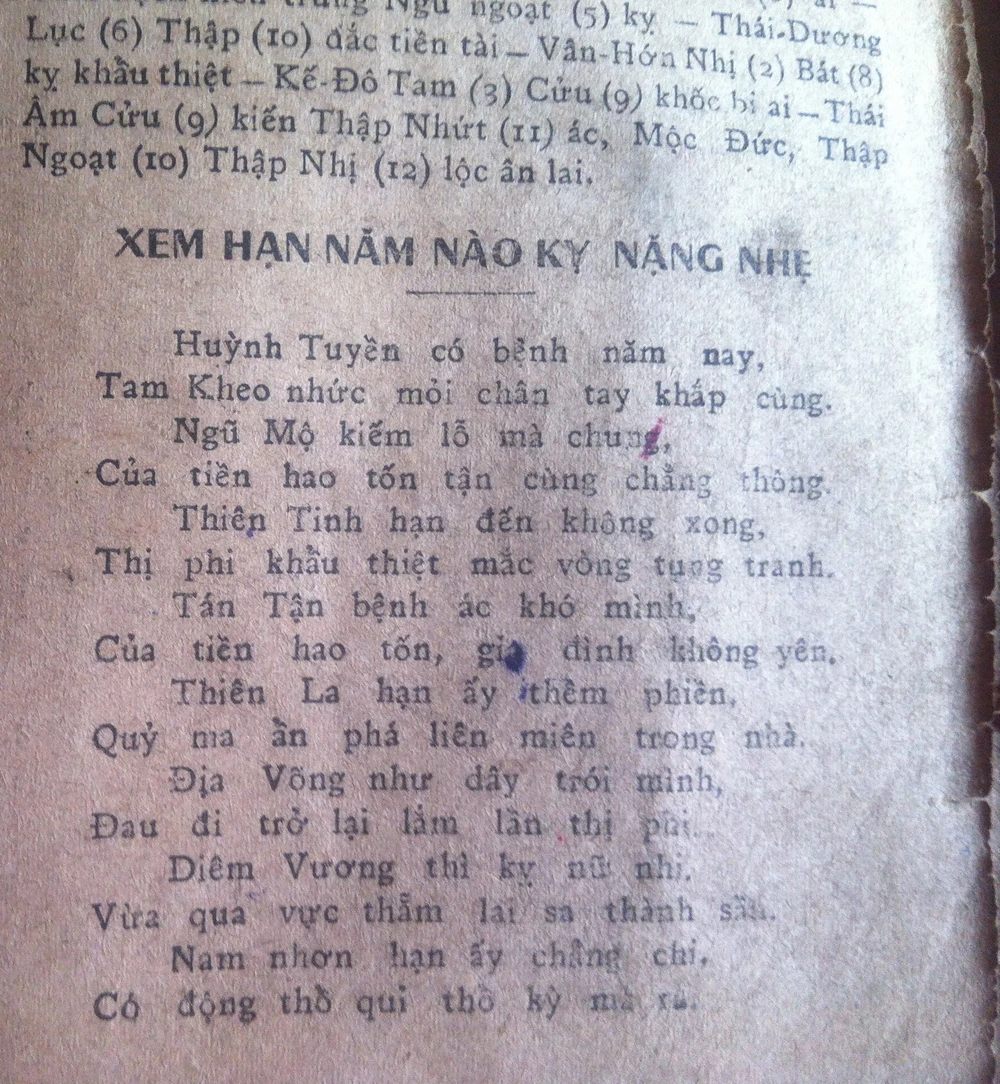 trung Ngũ ngoạt (5) kỵ — Thái-Dương
Lục (6) Thập (10) đắc tiền tài — Vân-Hớn Nhị (2) Bát (8)
kỵ khẩu thiệt — Kế-Đô Tam (3) Cửu (9) khốc bi ai — Thái
Âm Cửu (9) kiến Thập Nhứt (11) ác, Mộc Đức, Thập
Ngoạt (10) Thập Nhị (12) lộc ân lai.
XEM HẠN NĂM NÀO KỴ NẶNG NHẸ
Huỳnh Tuyền có bệnh năm nay,
Tam Kheo nhức mỏi chân tay khắp cùng.
Ngũ Mộ kiếm lỗ mà chung,
Của tiền hao tốn tận cùng chẳng thông.
Thiên Tinh hạn đến không xong,
Thị phi khẩu thiệt mắc vòng tụng tranh.
Tán Tận bệnh ác khó mình,
Của tiền hao tốn, gia đình không yên.
Thiên La hạn ấy thêm phiền,
Quỷ ma ẩn phá liên miên trong nhà.
Địa Võng như dây trói mình,
Đau đi trở lại lầm lần thị phi.
Diêm Vương thì kỵ nữ nhi.
Vừa qua vực thẳm lại sa thành sầu.
Nam nhơn hạn ấy chẳng chi,
Có động thổ qui thổ kỳ mà ra.